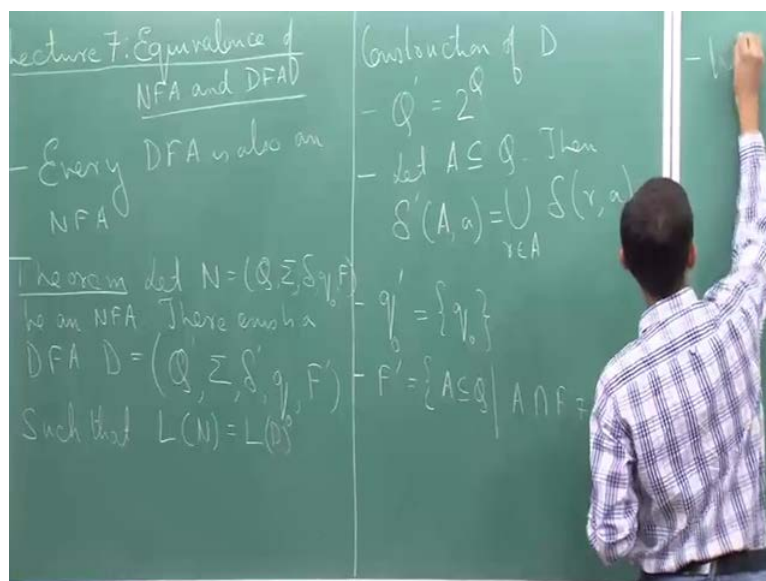 Lecture 7: Equivalence of
NFA and DFA
- Every DFA is also an
NFA
Theorem Let N = (Q, Σ, δ, q₀, F)
be an NFA. There exists a
DFA D = (Q', Σ, δ', q₀', F')
Such that L(N) = L(D)
Construction of D
- Q' = 2^Q
- Let A ⊆ Q. Then
δ'(A, a) = ⋃_{r∈A} δ(r, a)
- q₀' = {q₀}
- F' = {A ⊆ Q | A ∩ F ≠
-